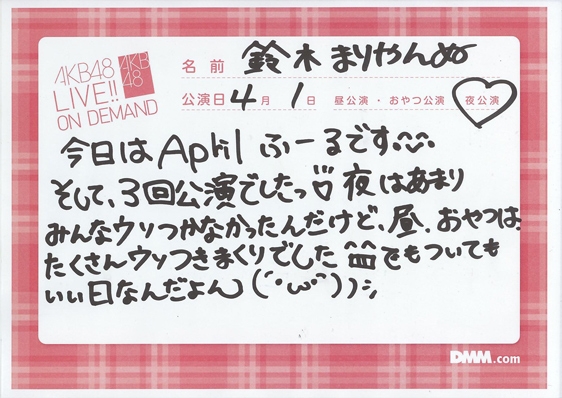 AKB48
LIVE!!
ON DEMAND
AKB
48
名前 鈴木まりやんぬ
公演日 4月 1日 昼公演・おやつ公演・夜公演
今日はApril ふーるです
そして、3回公演でしたっ 夜はあまり
みんなウソつかなかったんだけど、昼、おやつは、
たくさんウソつきまくりでした でもついても
いい日なんだよん(´・ω・`))
DMM.com